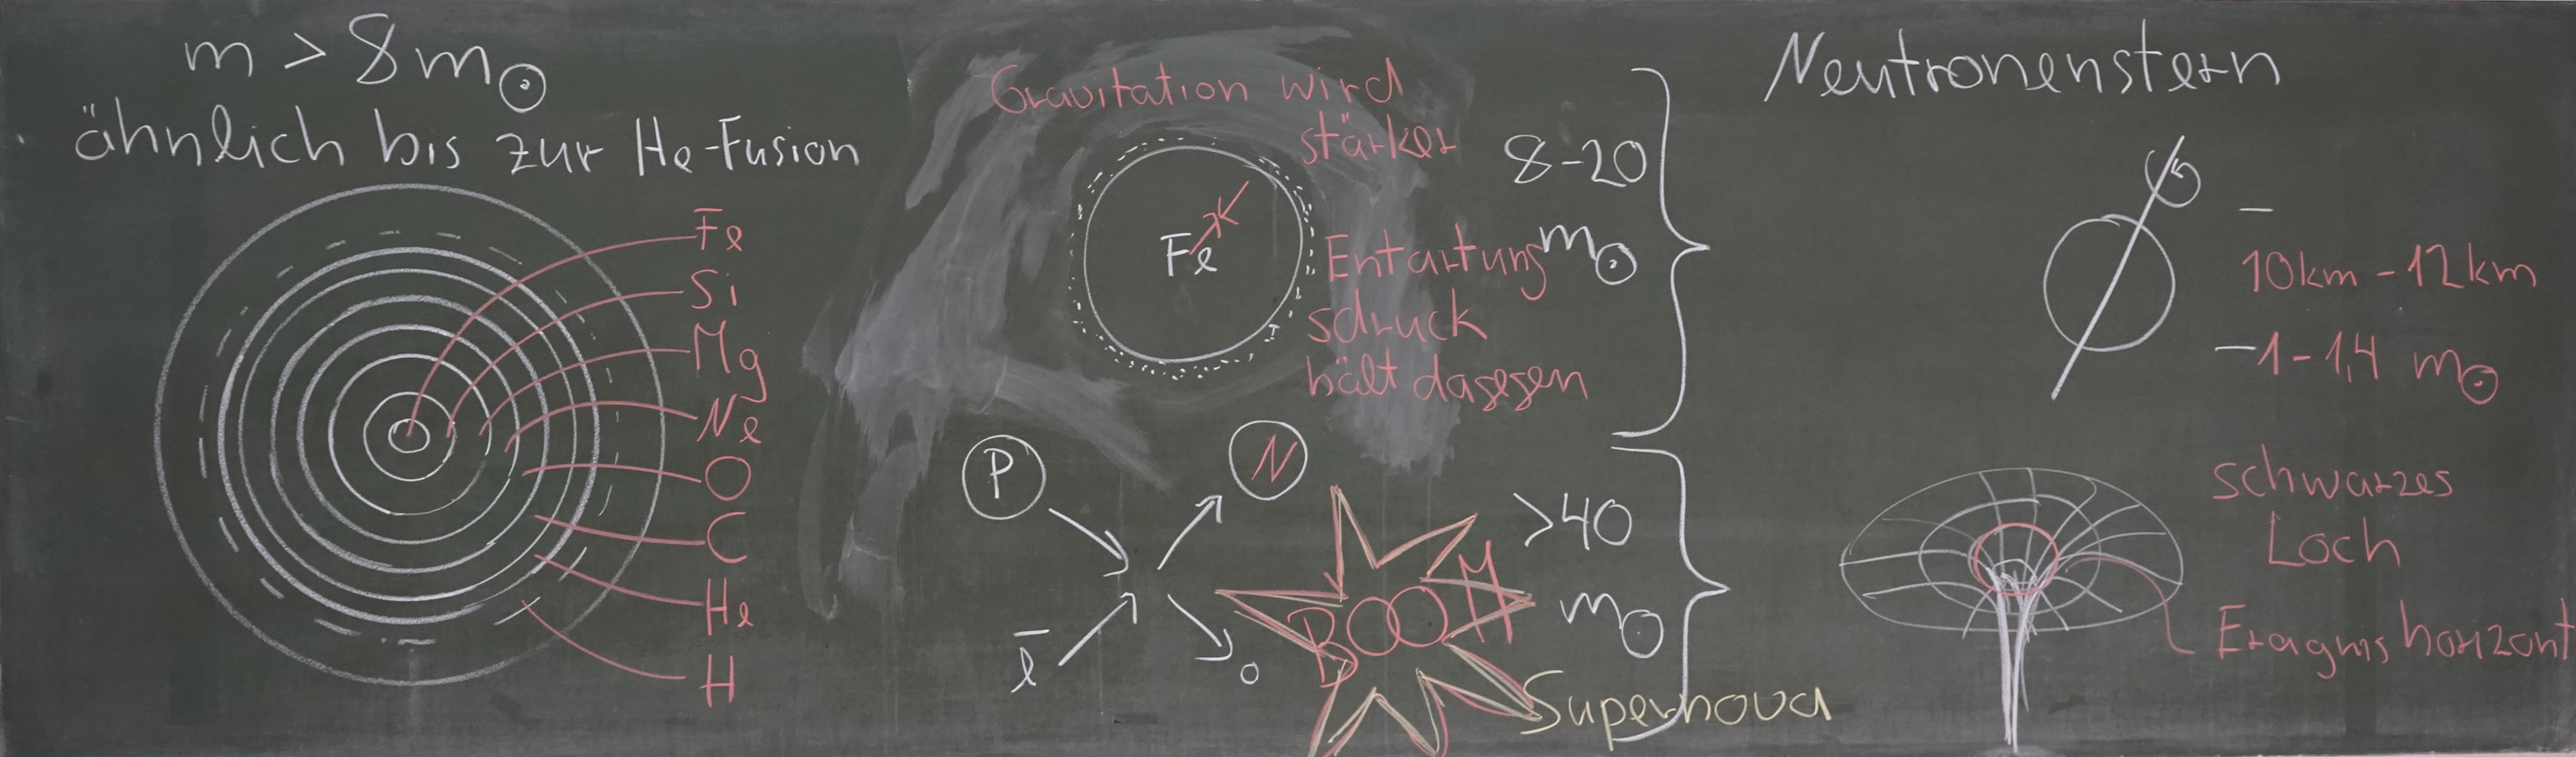 m > 8 m☉
ähnlich bis zur He-Fusion
Fe
Si
Mg
Ne
O
C
He
H
Gravitation wird
stärker
Fe
Entartung
sdruck
hält dagegen
P
N
e⁻
o
BOOM
Supernova
8-20
m☉
>40
m☉
Neutronenstern
–
10km - 12km
– 1 - 1,4 m☉
schwarzes
Loch
Eragnishorizont